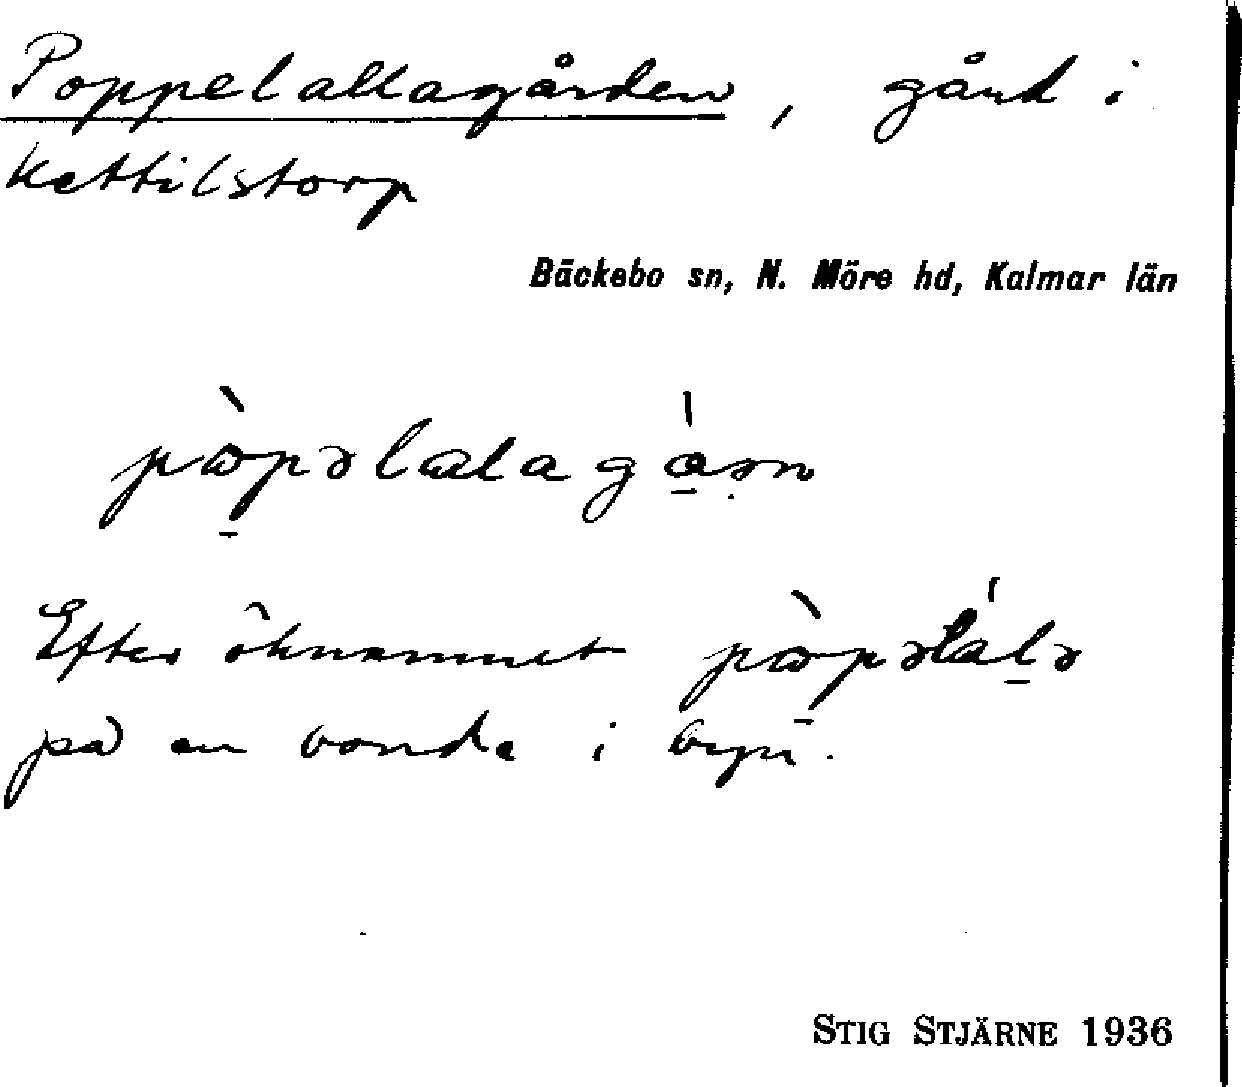 Poppelallagården, gård i
Kettilstorp
Bäckebo sn, N. Möre hd, Kalmar län
Efter öknamnet
på en bonde i byn.
STIG STJÄRNE 1936